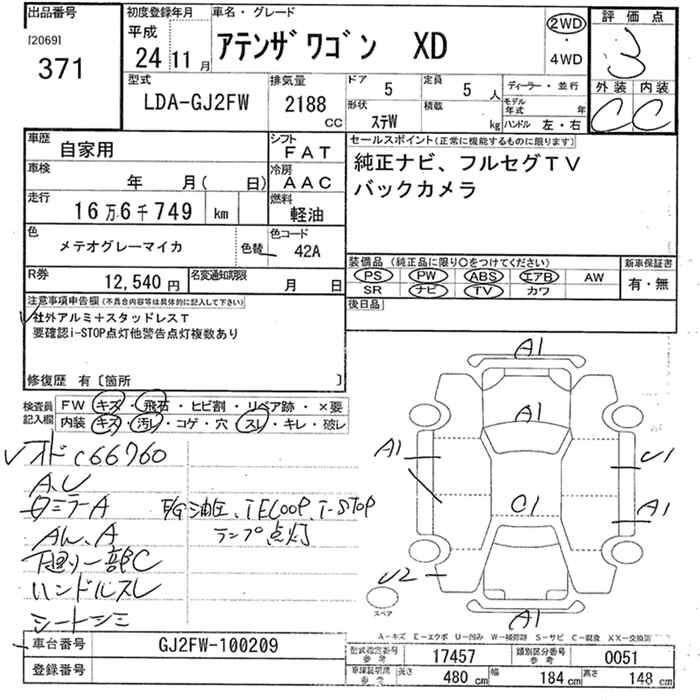 出品番号
[2069]
371
初度登録年月
平成
24 11 月
車名・グレード
アテンザワゴン XD
2WD
・
4WD
評価点
3
外装 内装
C C
型式
LDA-GJ2FW
排気量
2188
CC
ドア
5
定員
5 人
形状
ステW
積載
kg
ディーラー・並行
モデル年式 年
ハンドル 左・右
車歴
自家用
シフト
FAT
車検
年 月( 日)
冷房
AAC
走行
16万6千749 km
燃料
軽油
色
メテオグレーマイカ
色替
色コード
42A
R券
12,540 円
名変通知期限
月 日
セールスポイント(正常に機能するものに限ります)
純正ナビ、フルセグTV
バックカメラ
装備品 (純正品に限り○をつけてください)
PS PW ABS エアB AW
SR ナビ TV カワ
新車保証書
有・無
後日品
注意事項申告欄(不具合内容等は具体的に記入して下さい)
社外アルミ+スタッドレスT
要確認i-STOP点灯他警告点灯複数あり
修復歴 有〔箇所 〕
検査員記入欄
FW キズ・飛石・ヒビ割・リペア跡・×要
内装 キズ・汚レ・コゲ・穴・スレ・キレ・破レ
オドc66760
A.U
ミラーA
AW.A
下廻り一部C
ハンドルスレ
シートシミ
E/G油圧、iELOOP、i-STOP
ランプ点灯
A1
A1
A1
U1
A1
C1
U2
A1
スペア
A-キズ E-エクボ U-凹み W-補修跡 S-サビ C-腐食 XX-交換跡
車台番号
GJ2FW-100209
登録番号
型式指定番号参考
17457
類別区分番号参考
0051
長さ
480 cm
幅
184 cm
高さ
148 cm